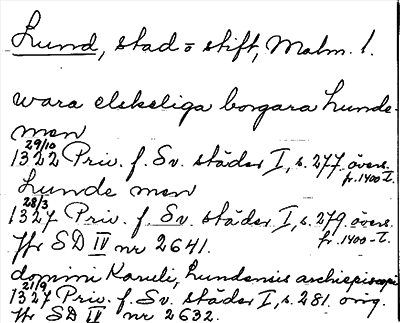 Lund, stad o stift, Malm. l.
wara elskeliga borgara Lunde-
men
29/10
1322 Priv. f. Sv. städer I, s. 277 övers.
fr. 1400-t.
Lunde men
28/3
1327 Priv. f. Sv. städer I, s. 279 övers.
fr. 1400-t.
Jfr SD IV nr 2641.
domini Karuli, Lundensis archiepiscopi
21/9
1327 Priv. f. Sv. städer I, s. 281. orig.
Jfr SD IV nr 2632.